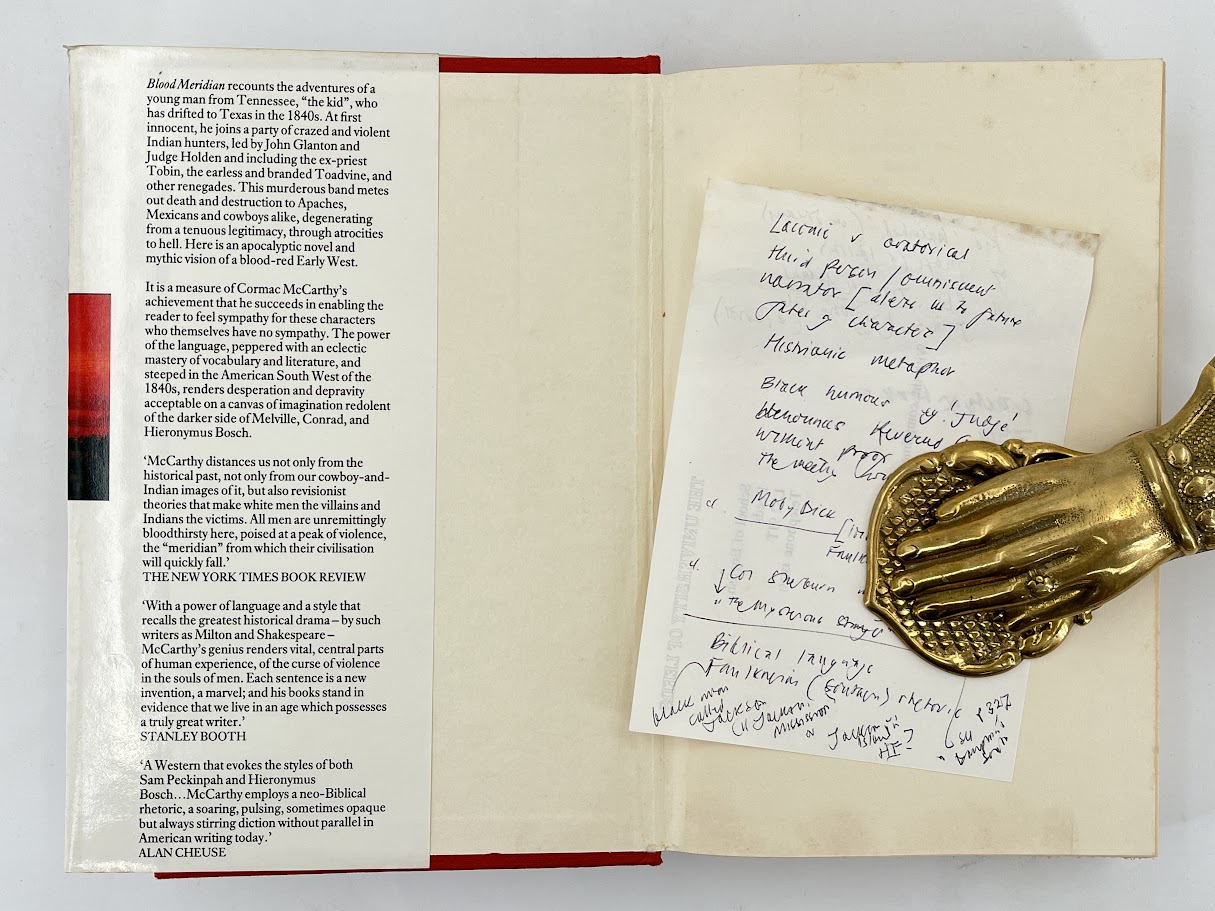 Blood Meridian recounts the adventures of a
young man from Tennessee, “the kid”, who
has drifted to Texas in the 1840s. At first
innocent, he joins a party of crazed and violent
Indian hunters, led by John Glanton and
Judge Holden and including the ex-priest
Tobin, the earless and branded Toadvine, and
other renegades. This murderous band metes
out death and destruction to Apaches,
Mexicans and cowboys alike, degenerating
from a tenuous legitimacy, through atrocities
to hell. Here is an apocalyptic novel and
mythic vision of a blood-red Early West.
It is a measure of Cormac McCarthy’s
achievement that he succeeds in enabling the
reader to feel sympathy for these characters
who themselves have no sympathy. The power
of the language, peppered with an eclectic
mastery of vocabulary and literature, and
steeped in the American South West of the
1840s, renders desperation and depravity
acceptable on a canvas of imagination redolent
of the darker side of Melville, Conrad, and
Hieronymus Bosch.
‘McCarthy distances us not only from the
historical past, not only from our cowboy-and-
Indian images of it, but also revisionist
theories that make white men the villains and
Indians the victims. All men are unremittingly
bloodthirsty here, poised at a peak of violence,
the “meridian” from which their civilisation
will quickly fall.’
THE NEW YORK TIMES BOOK REVIEW
‘With a power of language and a style that
recalls the greatest historical drama – by such
writers as Milton and Shakespeare –
McCarthy’s genius renders vital, central parts
of human experience, of the curse of violence
in the souls of men. Each sentence is a new
invention, a marvel; and his books stand in
evidence that we live in an age which possesses
a truly great writer.’
STANLEY BOOTH
‘A Western that evokes the styles of both
Sam Peckinpah and Hieronymus
Bosch…McCarthy employs a neo-Biblical
rhetoric, a soaring, pulsing, sometimes opaque
but always stirring diction without parallel in
American writing today.’
ALAN CHEUSE
Laconic v oratorical
third person / omniscient
narrator [alerts us to future
fates of characters]
Histrionic metaphor
Black humour eg. ‘Judge’
denounces Reverend
without proof
the meeting
cf. Moby Dick
cf.
“The Mysterious Stranger
Biblical language
Faulknerian (Southern) rhetoric
black man
called
Jackson
Jackson
p 327